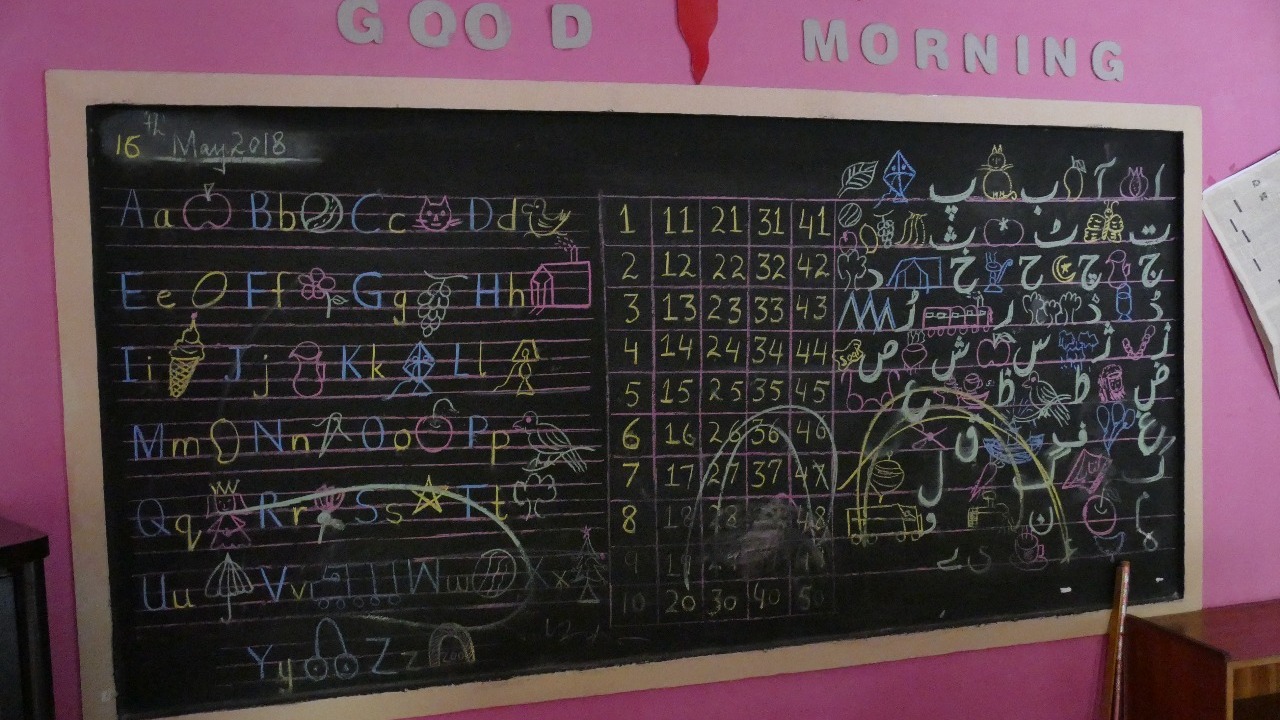 GOOD MORNING
16th May 2018
Aa Bb Cc Dd
Ee Ff Gg Hh
Ii Jj Kk Ll
Mm Nn Oo Pp
Qq Rr Ss Tt
Uu Vv Ww Xx
Yy Zz Zoo
1 11 21 31 41
2 12 22 32 42
3 13 23 33 43
4 14 24 34 44
5 15 25 35 45
6 16 26 36 46
7 17 27 37 47
8 18 28 38 48
9
10 20 30 40 50
ا آ ب پ
ت ٹ ث
ج چ ح خ د
ڈ ذ ر ڑ
ز ژ س ش ص Soap
ض ط ظ ع
غ ف ق
ک گ ل
م ن و
ی ے